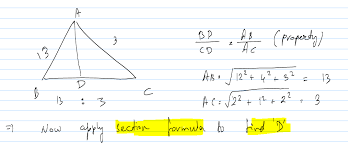 A
13
3
B
D
C
13 : 3
BD/CD = AB/AC (property)
AB = √12² + 4² + 3² = 13
AC = √2² + 1² + 2² = 3
⇒ Now apply section formula to find 'D'